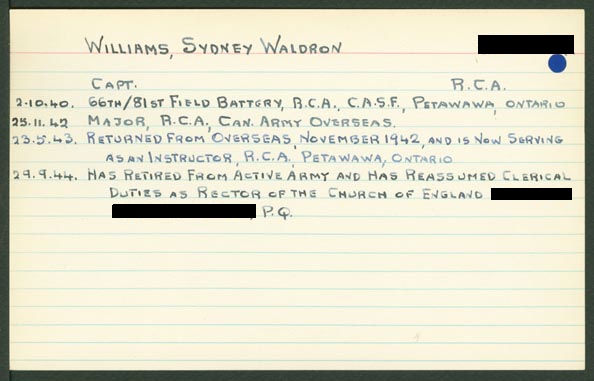 WILLIAMS, SYDNEY WALDRON
CAPT. R.C.A.
2.10.40. 66TH/81ST FIELD BATTERY, R.C.A., C.A.S.F., PETAWAWA, ONTARIO
25.11.42 MAJOR, R.C.A., CAN. ARMY OVERSEAS.
23.5.43. RETURNED FROM OVERSEAS, NOVEMBER 1942, AND IS NOW SERVING
AS AN INSTRUCTOR, R.C.A. PETAWAWA, ONTARIO
29.9.44. HAS RETIRED FROM ACTIVE ARMY AND HAS REASSUMED CLERICAL
DUTIES AS RECTOR OF THE CHURCH OF ENGLAND
P.Q.